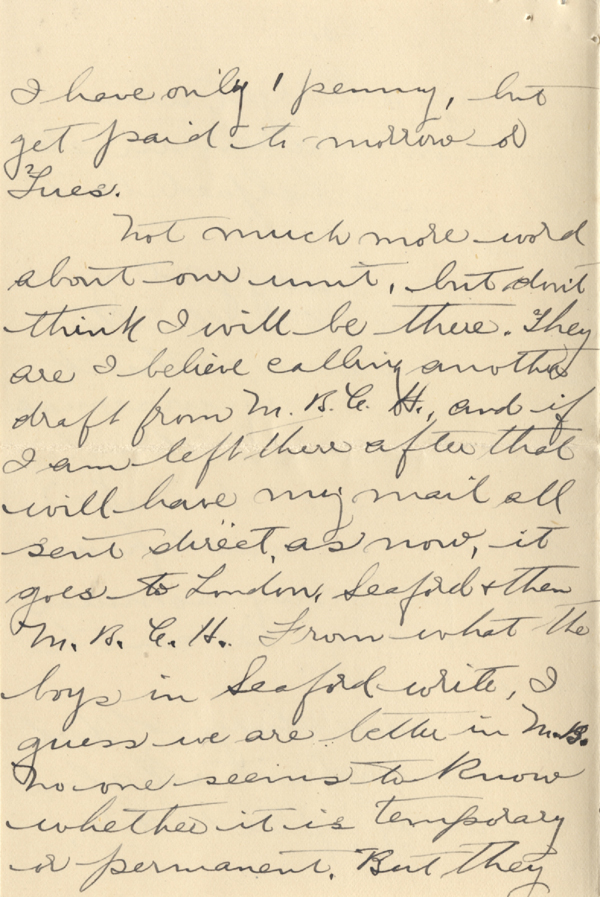 I have only 1 penny, but
get paid to-morrow or
Tues.
Not much more word
about our unit, but don't
think I will be there. They
are I believe calling another
draft from M. B. C. H., and if
I am left there after that
will have my mail all
sent direct, as now, it
goes to London, Seaford & then
M. B. C. H. From what the
boys in Seaford write, I
guess we are better in M.B.
No one seems to know
whether it is temporary
or permanent. But they